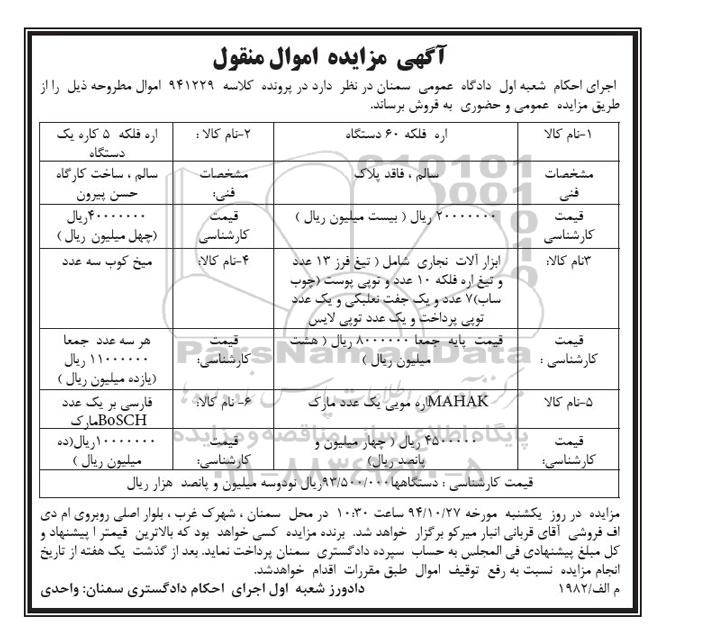 آگهی مزایده اموال منقول
اجرای احکام شعبه اول دادگاه عمومی سمنان در نظر دارد در پرونده کلاسه ۹۴۱۲۲۹ اموال مطروحه ذیل را از
طریق مزایده عمومی و حضوری به فروش برساند.
۱-نام کالا
اره فلکه ۶۰ دستگاه
۲-نام کالا :
اره فلکه ۵ کاره یک
دستگاه
مشخصات
فنی
سالم ، فاقد پلاک
مشخصات
فنی:
سالم ، ساخت کارگاه
حسن پیرون
قیمت
کارشناسی
۲۰۰۰۰۰۰۰ ریال ( بیست میلیون ریال )
قیمت
کارشناسی
۴۰۰۰۰۰۰۰ریال
(چهل میلیون ریال )
۳نام کالا:
ابزار آلات نجاری شامل ( تیغ فرز ۱۳ عدد
و تیغ اره فلکه ۱۰ عدد و توپی پوست (چوب
ساب)۷ عدد و یک جفت نعلبکی و یک عدد
توپی پرداخت و یک عدد توپی لایس
۴-نام کالا:
میخ کوب سه عدد
قیمت
کارشناسی :
قیمت پایه جمعا ۸۰۰۰۰۰۰ ریال ( هشت
میلیون ریال )
قیمت
کارشناسی:
هر سه عدد جمعا
۱۱۰۰۰۰۰۰ ریال
(یازده میلیون ریال )
۵-نام کالا
MAHAKاره مویی یک عدد مارک
۶- نام کالا:
فارسی بر یک عدد
BoSCHمارک
قیمت
کارشناسی:
۴۵۰۰۰۰۰ ریال ( چهار میلیون و
پانصد ریال)
قیمت
کارشناسی:
۱۰۰۰۰۰۰۰ریال(ده
میلیون ریال )
قیمت کارشناسی : دستگاهها۹۳/۵۰۰/۰۰۰ریال نودوسه میلیون و پانصد هزار ریال
مزایده در روز یکشنبه مورخه ۹۴/۱۰/۲۷ ساعت ۱۰:۳۰ در محل سمنان ، شهرک غرب ، بلوار اصلی روبروی ام دی
اف فروشی آقای قربانی انبار میرکو برگزار خواهد شد. برنده مزایده کسی خواهد بود که بالاترین قیمتر ا پیشنهاد و
کل مبلغ پیشنهادی فی المجلس به حساب سپرده دادگستری سمنان پرداخت نماید. بعد از گذشت یک هفته از تاریخ
انجام مزایده نسبت به رفع توقیف اموال طبق مقررات اقدام خواهدشد.
م الف/۱۹۸۲
دادورز شعبه اول اجرای احکام دادگستری سمنان: واحدی
ParsNamadData
پایگاه اطلاع رسانی مناقصه و مزایده